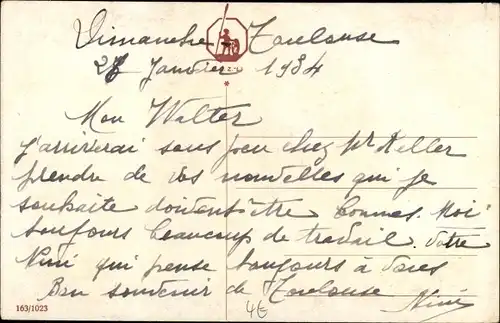 Dimanche Toulouse
28 Janvier 1934
Mon Walter
J'arriverai sous peu chez Mr Keller
prendre de vos nouvelles qui je
souhaite doivent être bonnes. Moi
toujours beaucoup de travail. Votre
Nini qui pense toujours à vous
Bon souvenir de Toulouse
Nini
163/1023
4€